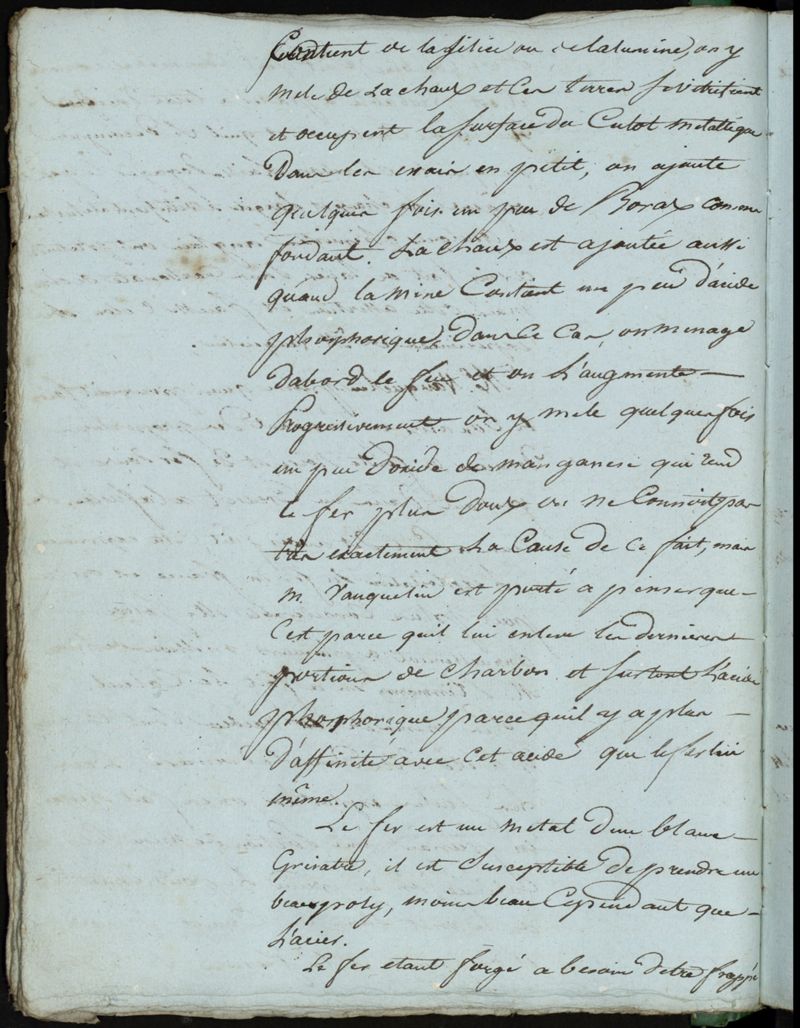 Contient de la silice ou de lalumine, on y
mele de La chaux et Ces terres se vitrifient
et occupent la Surface du Culot métallique
Dans les essais en petit, on ajoute
quelques fois un peu de Borax comme
fondant. La chaux est ajoutée aussi
quand la mine Contient un peu d'acide
phosphorique, dans Ce Cas, on menage
dabord le feu et on L'augmente
Progressivement on y mele quelques fois
un peu doxide de manganese qui rend
le fer plus Doux on ne Connoit pas
très exactement La Cause de Ce fait, mais
m. Vauquelin est porté a penser que
Cest parce quil lui enleve les dernieres
portions de Charbon et surtout L'acide
phosphorique parcequil y a plus
d'affinité avec Cet acide que le fer lui
même.
Le fer est un metal d'un blanc
Grisatre, il est Susceptible de prendre un
beau poly, moins beau Cependant que
L'acier.
Le fer etant forgé a besoin detre frappé